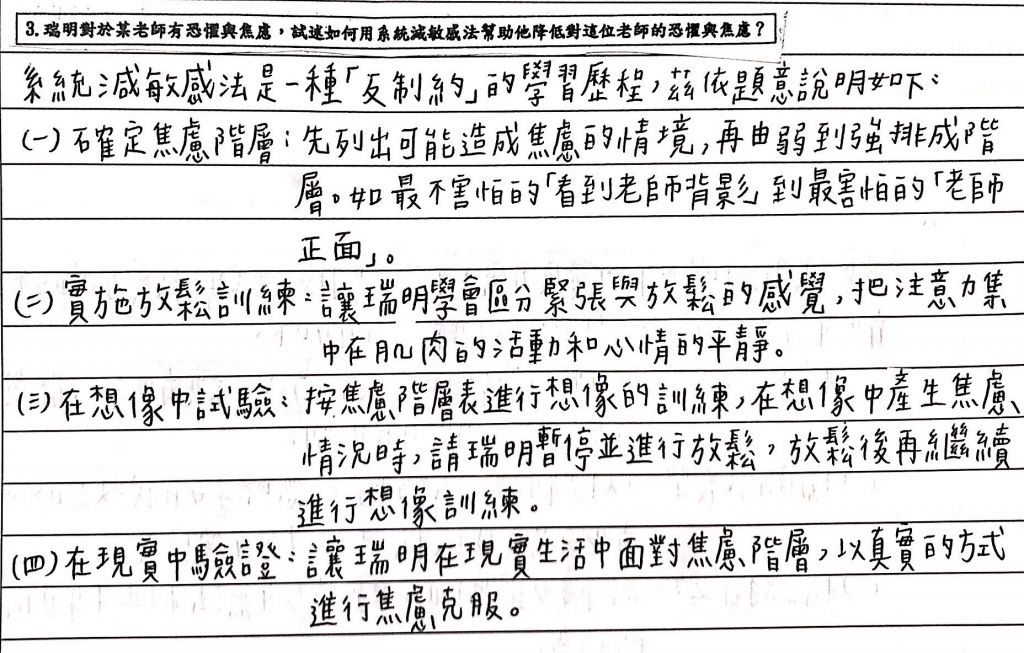 3. 瑞明對於某老師有恐懼與焦慮，試述如何用系統減敏感法幫助他降低對這位老師的恐懼與焦慮？
系統減敏感法是一種「反制約」的學習歷程，茲依題意說明如下：
(一) 確定焦慮階層：先列出可能造成焦慮的情境，再由弱到強排成階
層。如最不害怕的「看到老師背影」到最害怕的「老師
正面」。
(二) 實施放鬆訓練：讓瑞明學會區分緊張與放鬆的感覺，把注意力集
中在肌肉的活動和心情的平靜。
(三) 在想像中試驗：按焦慮階層表進行想像的訓練，在想像中產生焦慮
情況時，請瑞明暫停並進行放鬆，放鬆後再繼續
進行想像訓練。
(四) 在現實中驗證：讓瑞明在現實生活中面對焦慮階層，以真實的方式
進行焦慮克服。